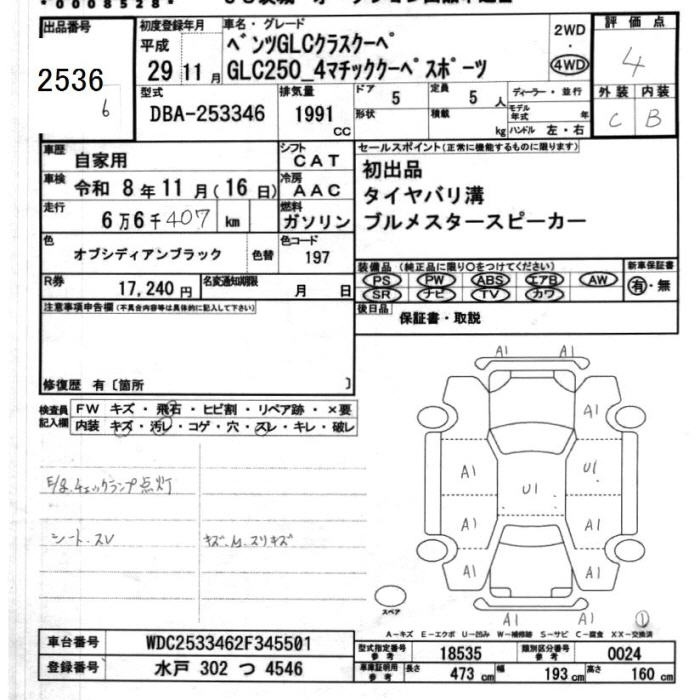 *0008528*
出品番号
2536
6
初度登録年月
平成
29年11月
車名・グレード
ベンツGLCクラスクーペ
GLC250_4マチッククーペスポーツ
2WD
・
4WD
評価点
4
外装 内装
C B
型式
DBA-253346
排気量
1991 CC
ドア 5
定員 5人
形状
積載 kg
ディーラー・並行
モデル年式 年
ハンドル 左・右
車歴
自家用
シフト
CAT
車検
令和 8年11月(16日)
冷房
AAC
走行
6万6千407 km
燃料
ガソリン
色
オブシディアンブラック
色替
色コード
197
R券
17,240円
名変通知期限
月 日
セールスポイント(正常に機能するものに限ります)
初出品
タイヤバリ溝
ブルメスタースピーカー
装備品(純正品に限り○をつけてください)
PS PW ABS エアB AW
SR ナビ TV カワ
新車保証書
有・無
後日品
保証書・取説
注意事項申告欄(不具合内容等は具体的に記入して下さい)
修復歴 有〔箇所 〕
検査員記入欄
FW キズ・飛石・ヒビ割・リペア跡・×要
内装 キズ・汚レ・コゲ・穴・スレ・キレ・破レ
E/gチェックランプ点灯
シート.スレ
A1 A1
A1
A1 U1
U1
A1 A1
A1 A1
A1 A1
スペア
1
A-キズ E-エクボ U-凹み W-補修跡 S-サビ C-腐食 XX-交換済
車台番号
WDC2533462F345501
登録番号
水戸 302 つ 4546
型式指定番号
参考
18535
類別区分番号
参考
0024
車庫証明用
参考
長さ 473 cm
幅 193 cm
高さ 160 cm